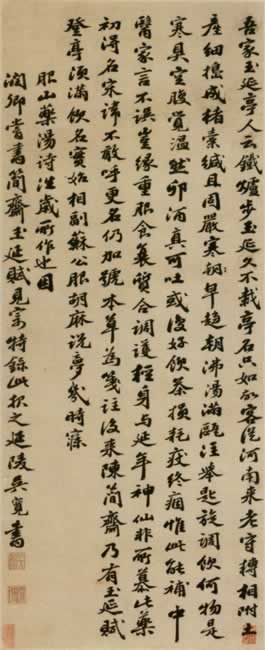 吾家玉延亭人云鐵爐步玉延久不栽亭名只如故客從河南来老守轉相附土
産細擣成楮素緘且固嚴寒朝早趨朝沸湯滿甌注舉匙旋調飲何物是
寒具空腹覺溫然卯酒真可吐或後好飲茶損耗疫終痼惟此能補中
醫家言不誤豈緣重服食氣質合調護輕身與延年神仙非所慕此藥
初得名宋諱不敢呼更名仍加號本草為箋註後来陳簡齋乃有玉延賦
登亭須滿飲名實始相副蘇公服胡麻說夢幾時寤
服山藥湯詩往歲所作也因
潤卿嘗書簡齋玉延賦見寄特錄此報之延陵吳寬書